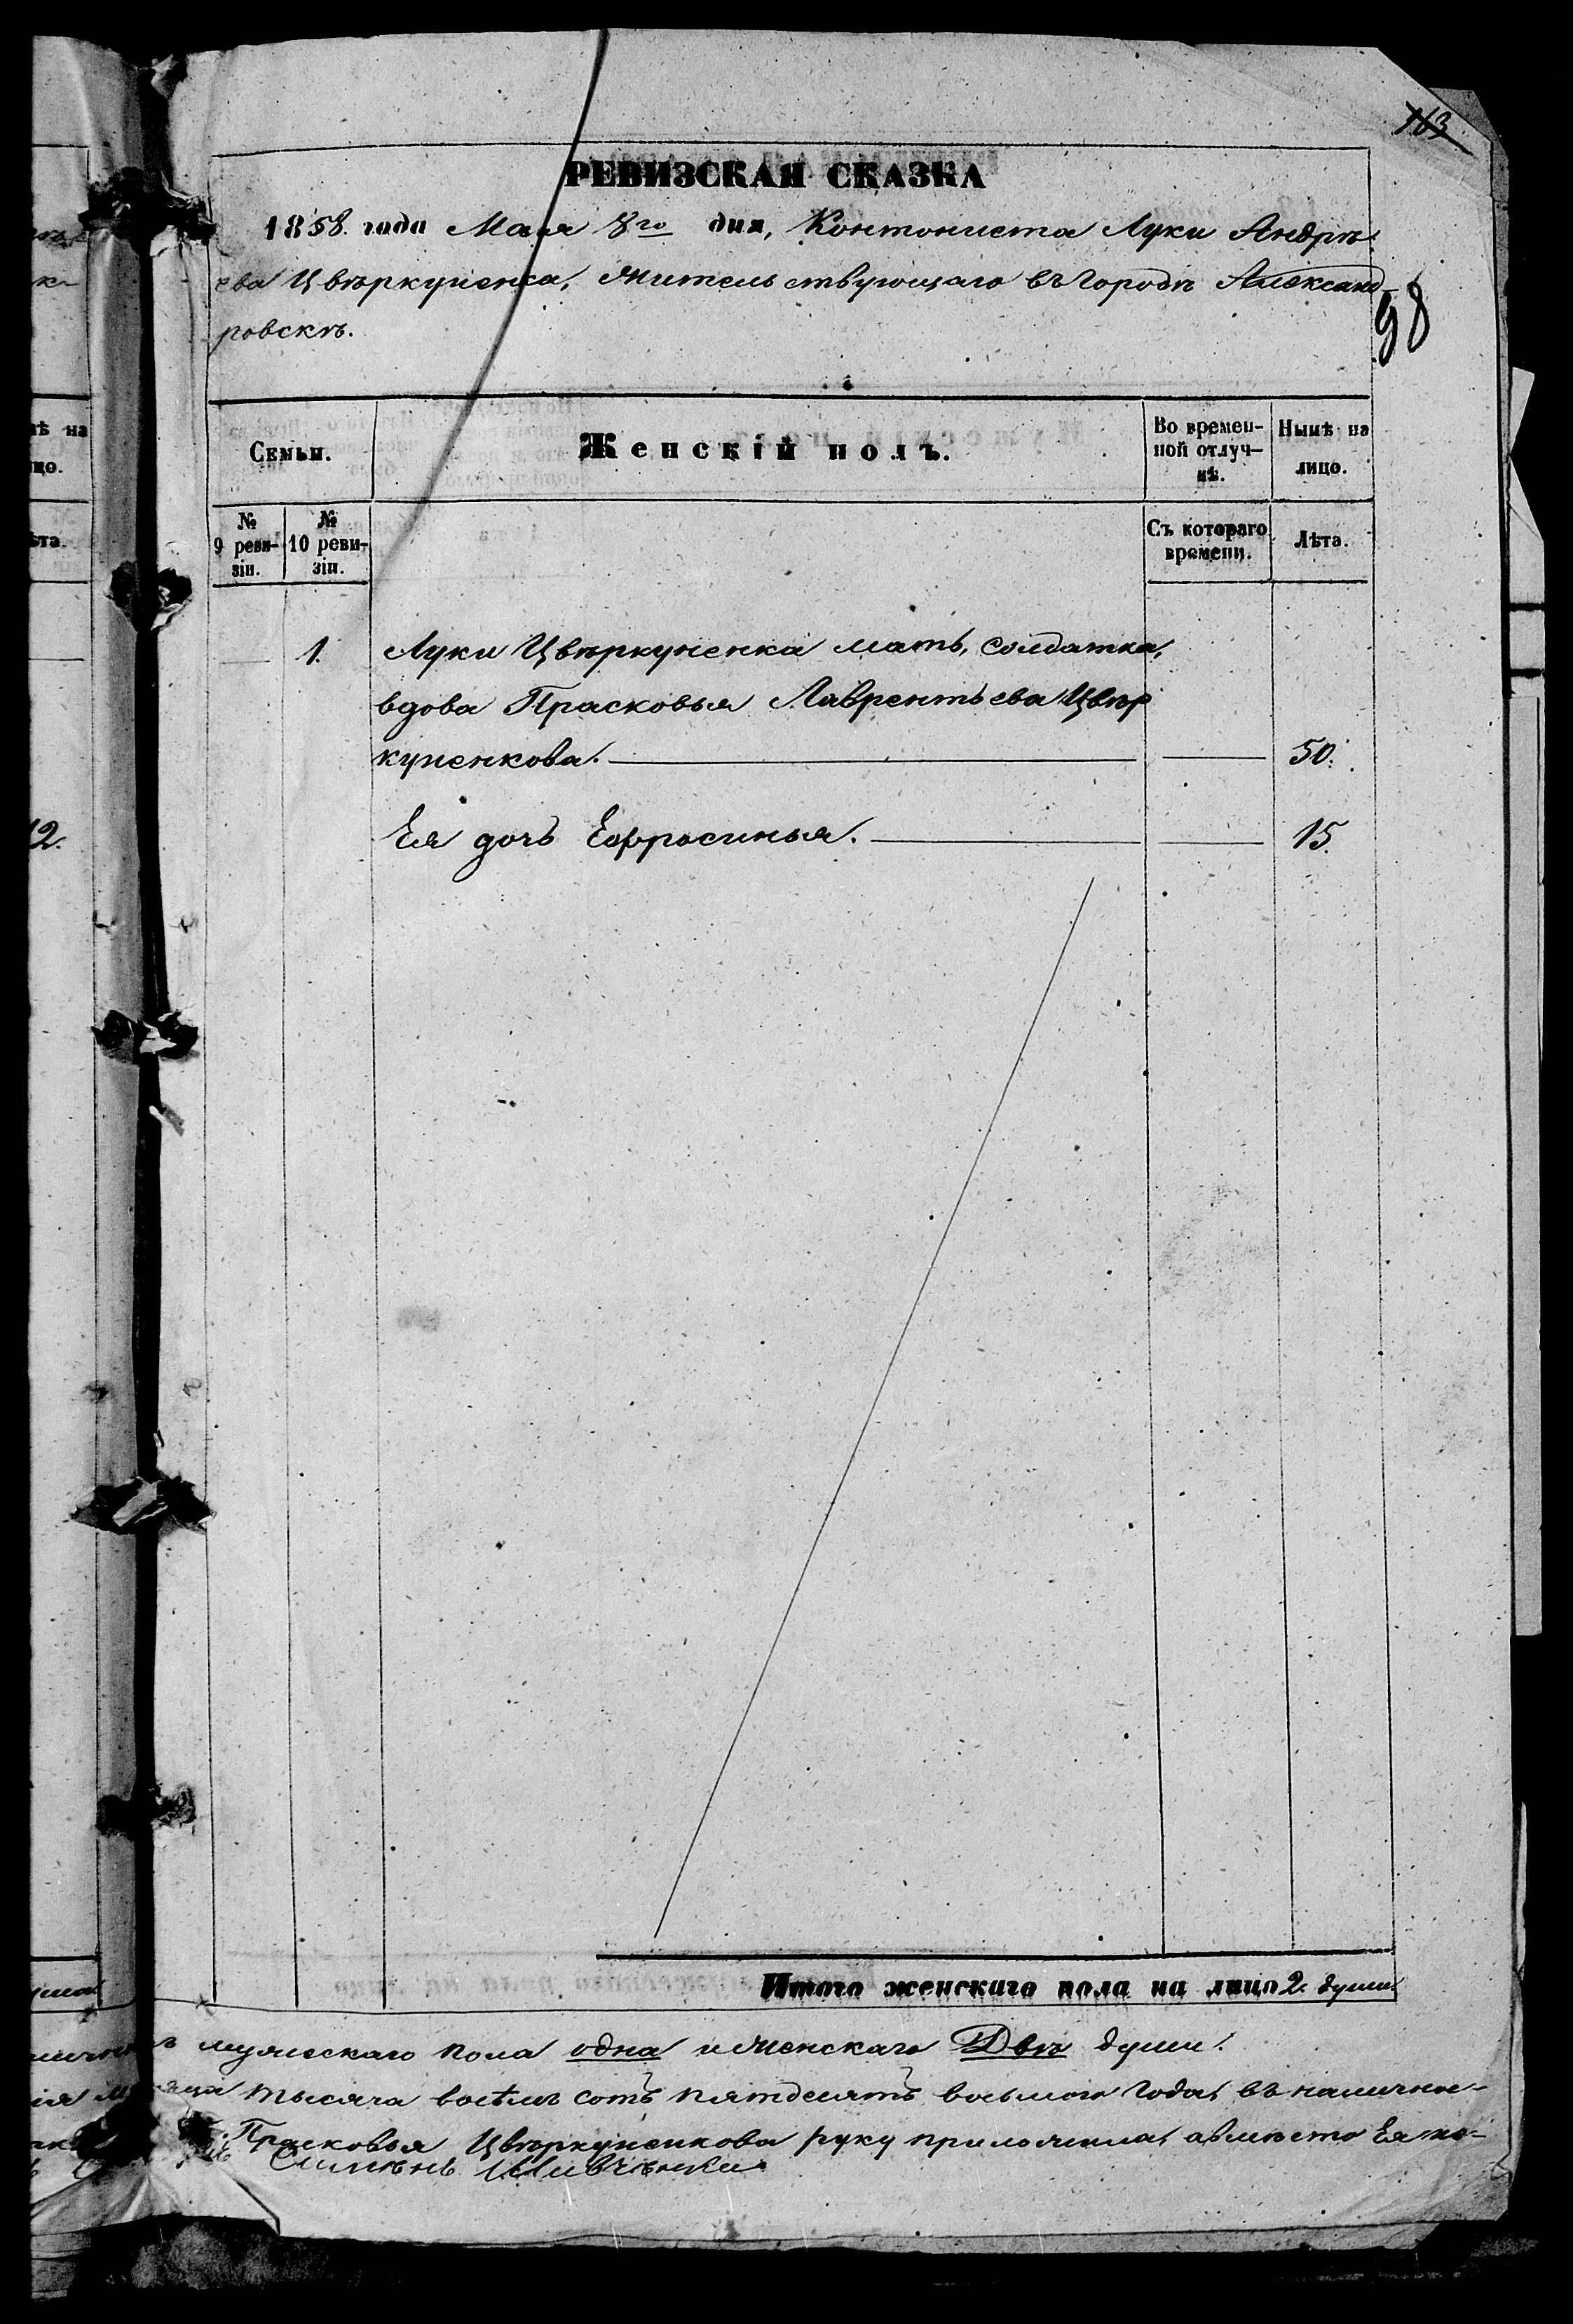 163
РЕВИЗСКАЯ СКАЗКА
1858. года Мая 8го дня, Контониста Луки Андрѣ
ева Цвѣркуненка, жительствующаго въ городѣ Александ-
ровскѣ.
98
Семьи.
Женскій полъ.
Во времен-
ной отлуч-
кѣ.
Нынѣ на
лицо.
№
9 реви-
зіи.
№
10 реви-
зіи.
Съ котораго
времени.
Лѣта.
1. Луки Цвѣркуненка мать, солдатка,
вдова Прасковья Лаврентьева Цвѣр
куненкова. 50.
Ея дочь Ефросинья. 15.
12.
Итого женскаго пола на лицо 2. души.
мужескаго пола одна и женскаго Двѣ души.
тысяча восѣмь сотъ пятдесятъ восьмого года, въ налично-
Прасковья Цвѣркуненкова руку приложила, авмѣсто Ея не-